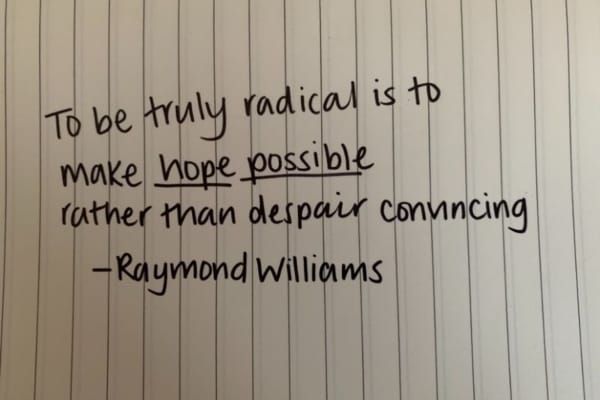 To be truly radical is to
make hope possible
rather than despair convincing
-Raymond Williams